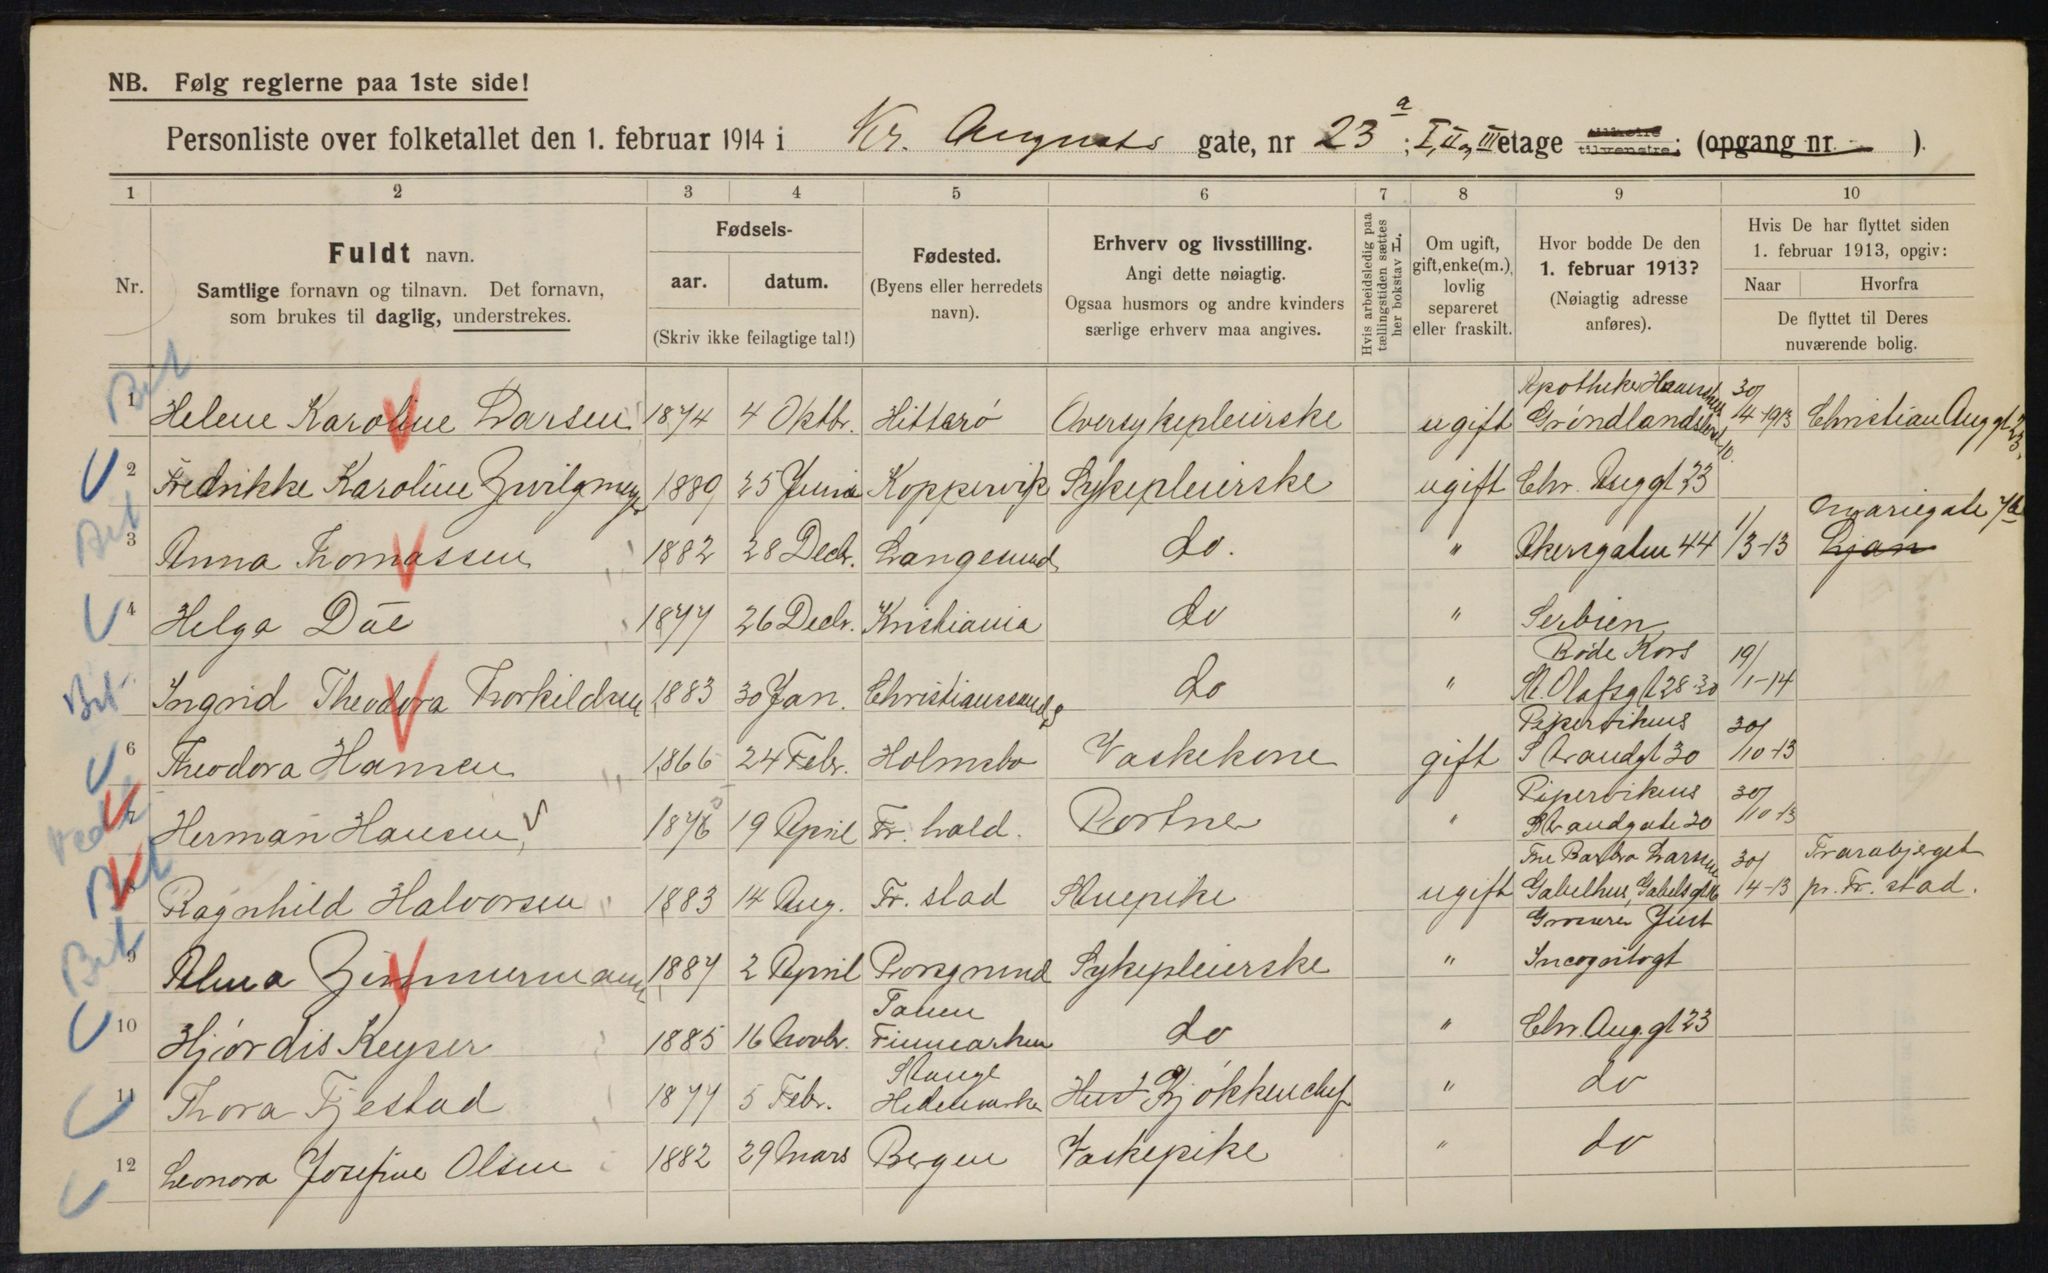 NB. Følg reglerne paa 1ste side!
Personliste over folketallet den 1. februar 1914 i Kr. Augusts gate, nr 23 a ; I, II og III etage tilhøire tilvenstre; (opgang nr ).
1 2 3 4 5 6 7 8 9 10
Nr.
Fuldt navn.
Samtlige fornavn og tilnavn. Det fornavn,
som brukes til daglig, understrekes.
Fødsels-
aar. datum.
(Skriv ikke feilagtige tal!)
Fødested.
(Byens eller herredets
navn).
Erhverv og livsstilling.
Angi dette nøiagtig.
Ogsaa husmors og andre kvinders
særlige erhverv maa angives.
Hvis arbeidsledig paa
tællingstiden sættes
her bokstav L.
Om ugift,
gift, enke(m.),
lovlig
separeret
eller fraskilt.
Hvor bodde De den
1. februar 1913?
(Nøiagtig adresse
anføres).
Hvis De har flyttet siden
1. februar 1913, opgiv:
Naar Hvorfra
De flyttet til Deres
nuværende bolig.
1 Helene Karoline Larsen 1874 4 Oktbr. Hitterö Oversykepleierske ugift Apotheker Grøndlandsleret 10. 30/4-1913 Christian Aug gt 23,
2 Fredrikke Karoline Zwilgmeyer 1889 25 Juni Koppervik Sykepleierske ugift Chr. Aug gt 23
3 Anna Thomassen 1882 28 Decbr. Langesund do. " Akersgaten 44 1/3-13 Mariegate 7b Ljan
4 Helga Däe 1877 26 Decbr. Kristiania do " Serbien Røde Kors
Ingrid Theodora Thorkildsen 1883 30 Jan. Christianssand S do " St. Olafsgt 28-30 19/1-14
6 Theodora Hansen 1866 24 Febr. Holmsbo Vaskekone gift Pipervikens Strandgt 30 30/10-13
7 Herman Hansen 1876 5 19 April Fr. hald. Portner " Pipervikens Strandgate 30 30/10-13
8 Ragnhild Halvorsen 1883 14 Aug. Fr. stad Stuepike ugift Frue Barbra Larsen Gabelhus, Gabelsgt 16 30/14-13 Trarabjerget pr. Fr. stad.
9 Alma Zimmermann 1887 2 April Porsgrund Sykepleierske " Grosserer Just Incognitogt
10 Hjørdis Keyser 1885 16 Novbr. Tanen Finmarken do " Chr. Aug. gt 23
11 Thora Fjestad 1877 5 Febr. Stange Hedemarken Hust Kjøkkenchef " do
12 Leonora Josefine Olsen 1882 29 Mars Bergen Vaskepike " do